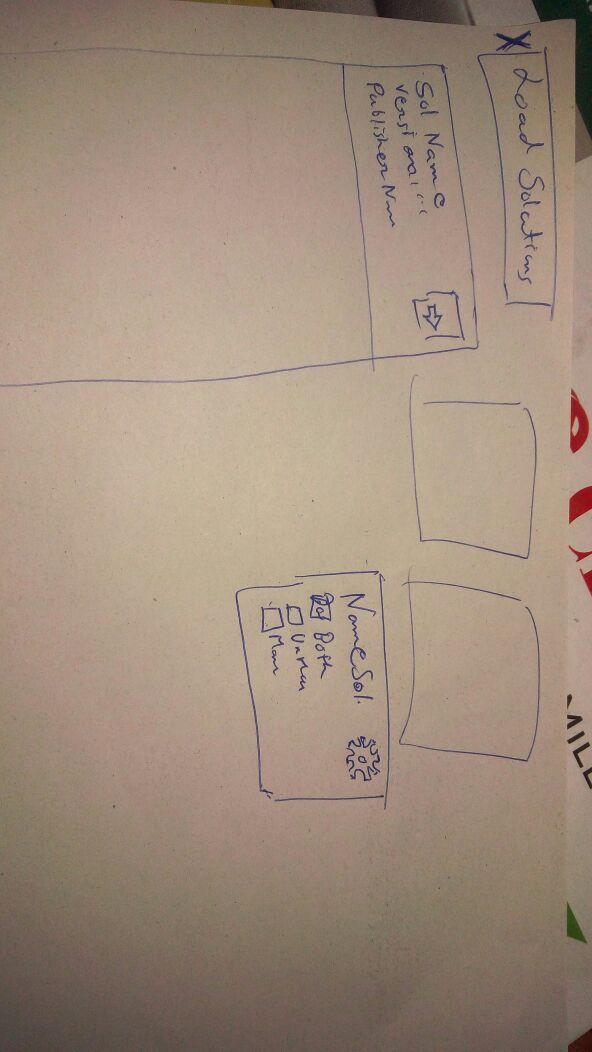 MILL
X Load Solutions
Sol Name
Version 1...
Publisher Nam
Name Sol.
Both
Unman
Man